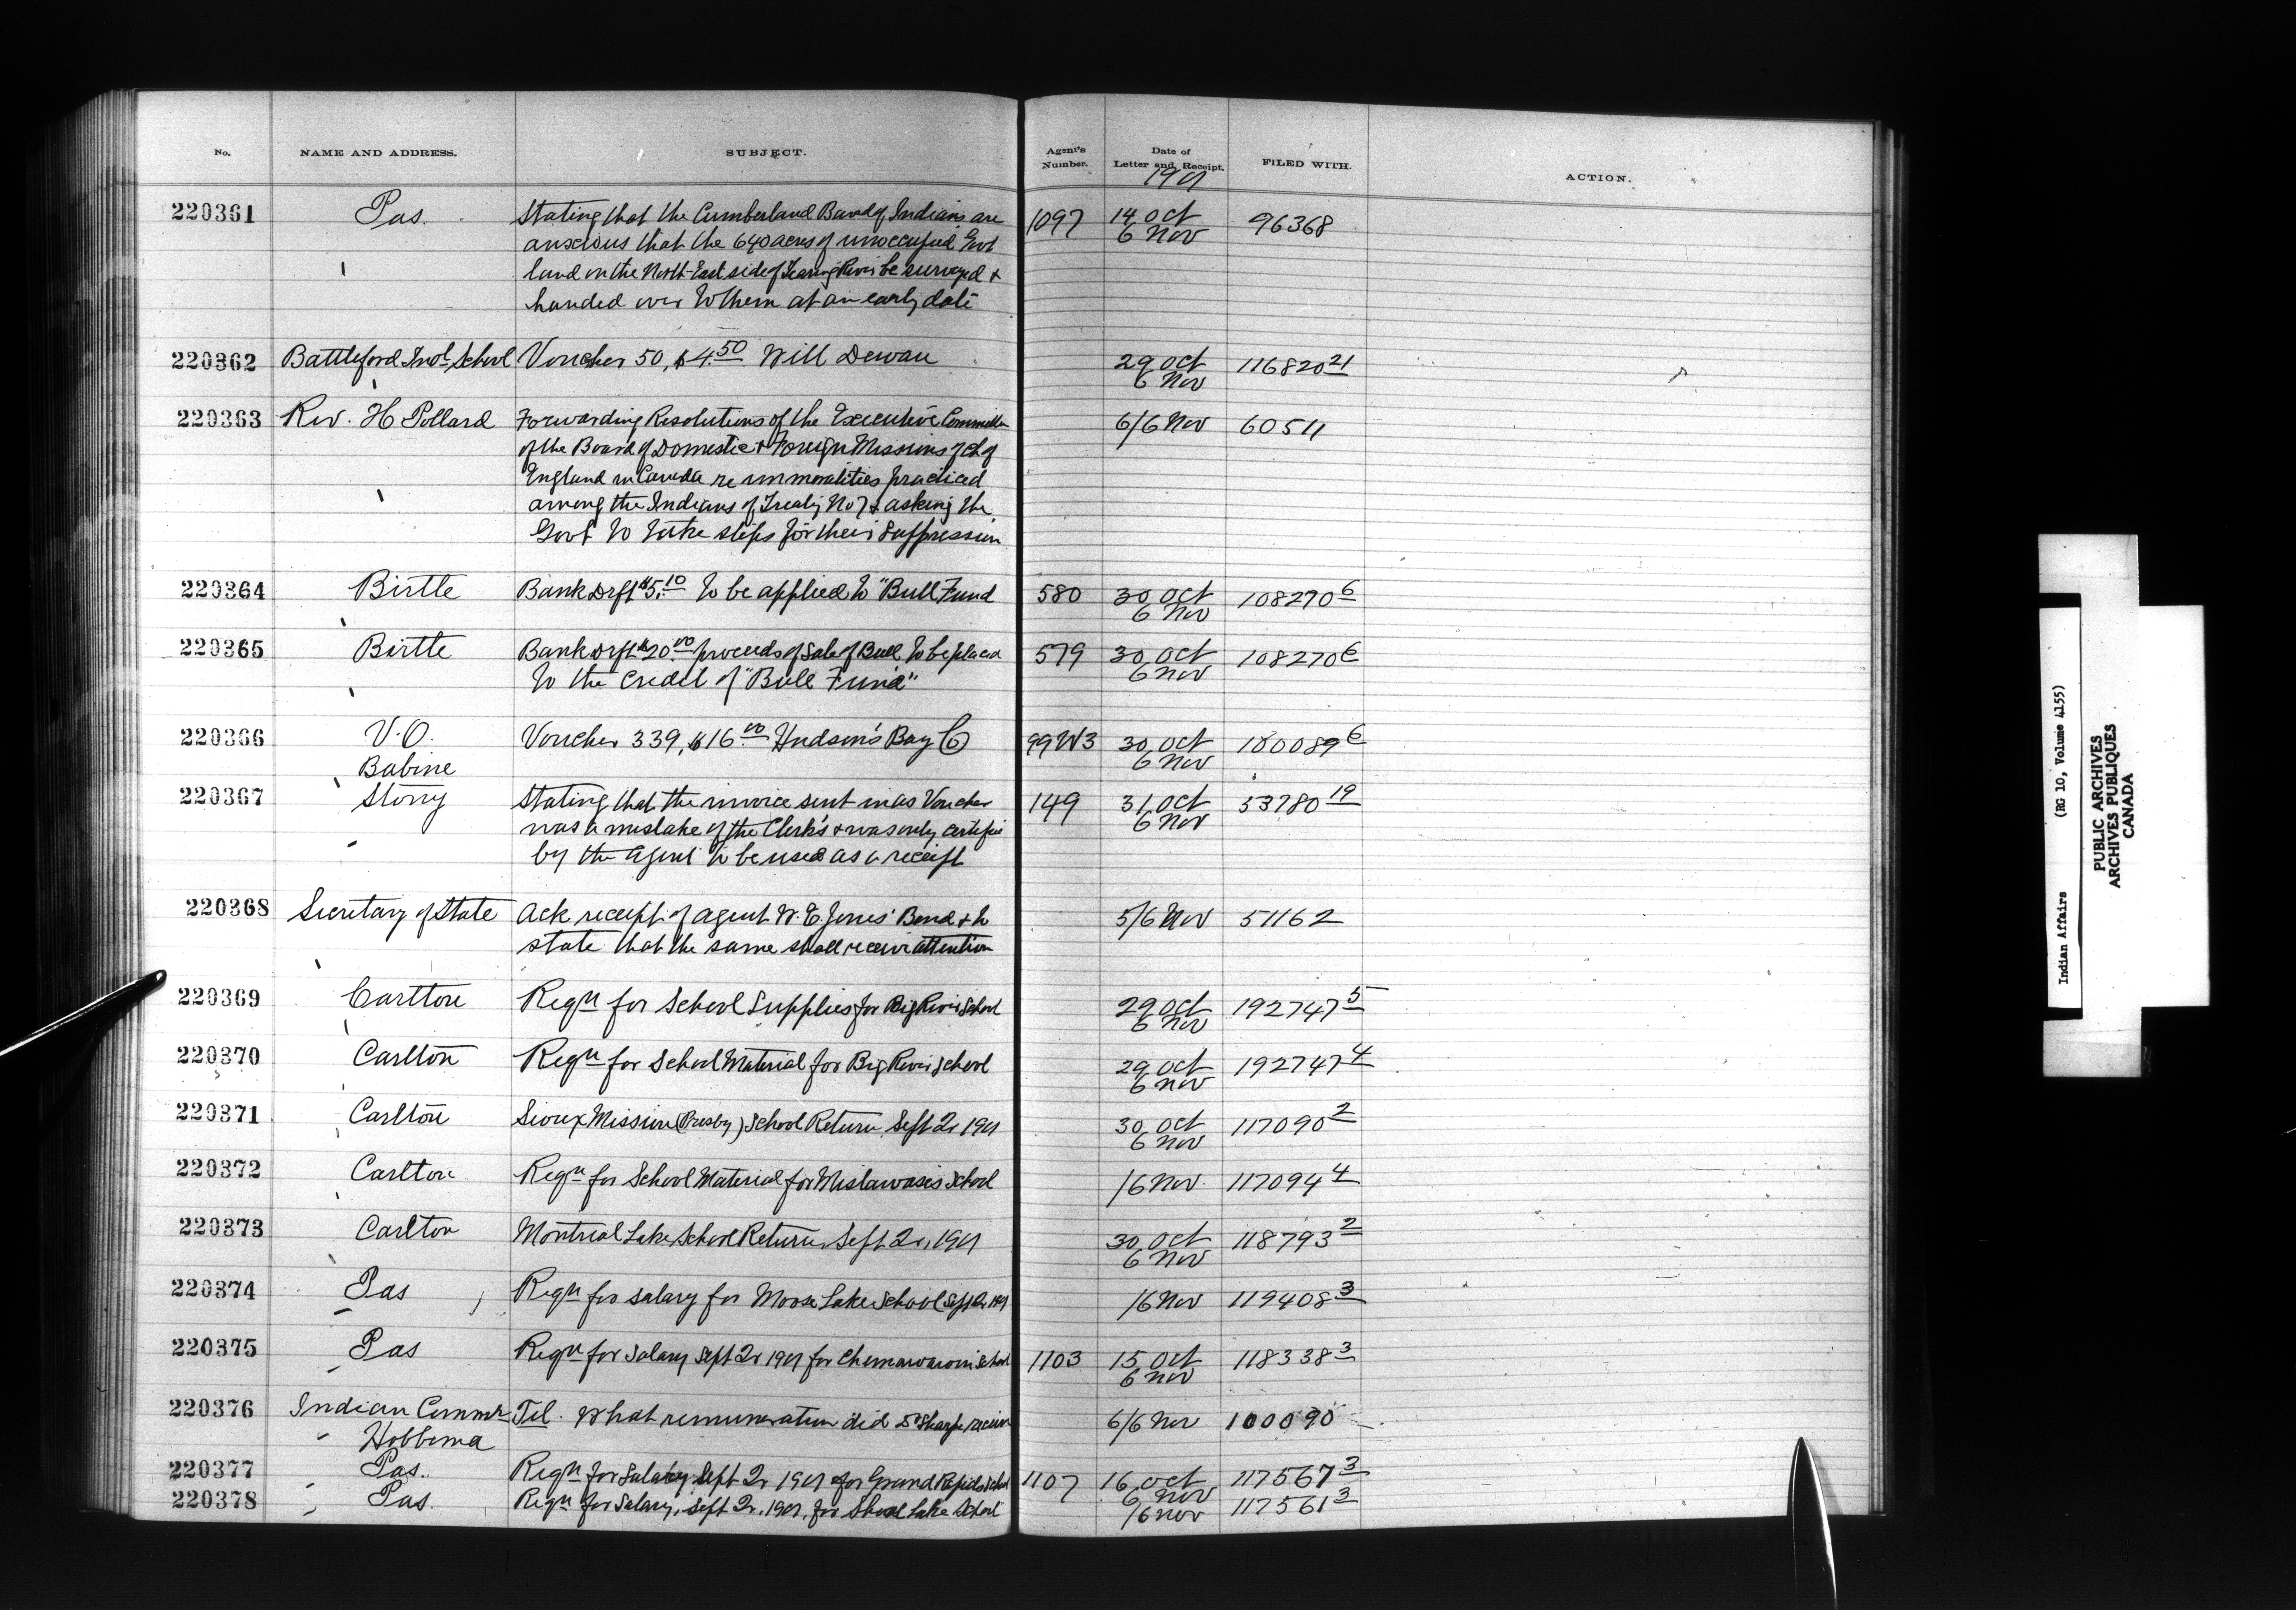 No. NAME AND ADDRESS. SUBJECT. Agent's Number. Date of Letter and Receipt. FILED WITH. ACTION.
1901
220361 Pas. Stating that the Cumberland Band of Indians are 1097 14 Oct 96368
anxious that the 640 acres of unoccupied Govt 6 Nov
land on the North-East side of Tearing River be surveyed &
handed over to them at an early date
220362 Battleford Indl School Voucher 50, $4.50 Will Dewan 29 Oct 116820 21
6 Nov
220363 Rev. H Pollard Forwarding Resolutions of the Executive Committee 6/6 Nov 60511
of the Board of Domestic & Foreign Missions of Ch of
England in Canada re immoralities practiced
among the Indians of Treaty No 7 & asking the
Govt to take steps for their suppression
220364 Birtle Bank Drft $5.10 to be applied to "Bull Fund 580 30 Oct 108270 6
6 Nov
220365 Birtle Bank Drft $20.00 proceeds of Sale of Bull to be placed 579 30 Oct 108270 6
to the Credit of "Bull Fund" 6 Nov
220366 V.O. Voucher 339, $16.00 Hudson's Bay Co 99W3 30 Oct 180089 6
Babine 6 Nov
220367 Stony Stating that the invoice sent in as Voucher 149 31 Oct 53780 19
was a mistake of the Clerk's & was only certified 6 Nov
by the Agent to be used as a receipt
220368 Secretary of State Ack receipt of agent W. E. Jones' Bond & to 5/6 Nov 51162
state that the same shall receive attention
220369 Carlton Reqn for School Supplies for Big River School 29 Oct 192747 5
6 Nov
220370 Carlton Reqn for School Material for Big River School 29 Oct 192747 4
6 Nov
220371 Carlton Sioux Mission (Presby) School Return Sept 2r 1901 30 Oct 117090 2
6 Nov
220372 Carlton Reqn for School Material for Mistawasis School /6 Nov 117094 4
220373 Carlton Montreal Lake School Return Sept 2r, 1901 30 Oct 118793 2
6 Nov
220374 Pas Reqn for salary for Moose Lake School Sept 2r 1901 /6 Nov 119408 3
220375 Pas Reqn for Salary Sept 2r 1901 for Chemawawin School 1103 15 Oct 118338 3
6 Nov
220376 Indian Commr Tel. What remuneration did Dr Sharpe receive 6/6 Nov 100090
Hobbema
220377 Pas. Reqn for Salary Sept 2r 1901 for Grand Rapids School 1107 16 Oct 117567 3
6 Nov
220378 Pas. Reqn for Salary, Sept 2r, 1901, for Shoal Lake School /6 Nov 117561 3
Indian Affairs (RG 10, Volume 4155)
PUBLIC ARCHIVES
ARCHIVES PUBLIQUES
CANADA